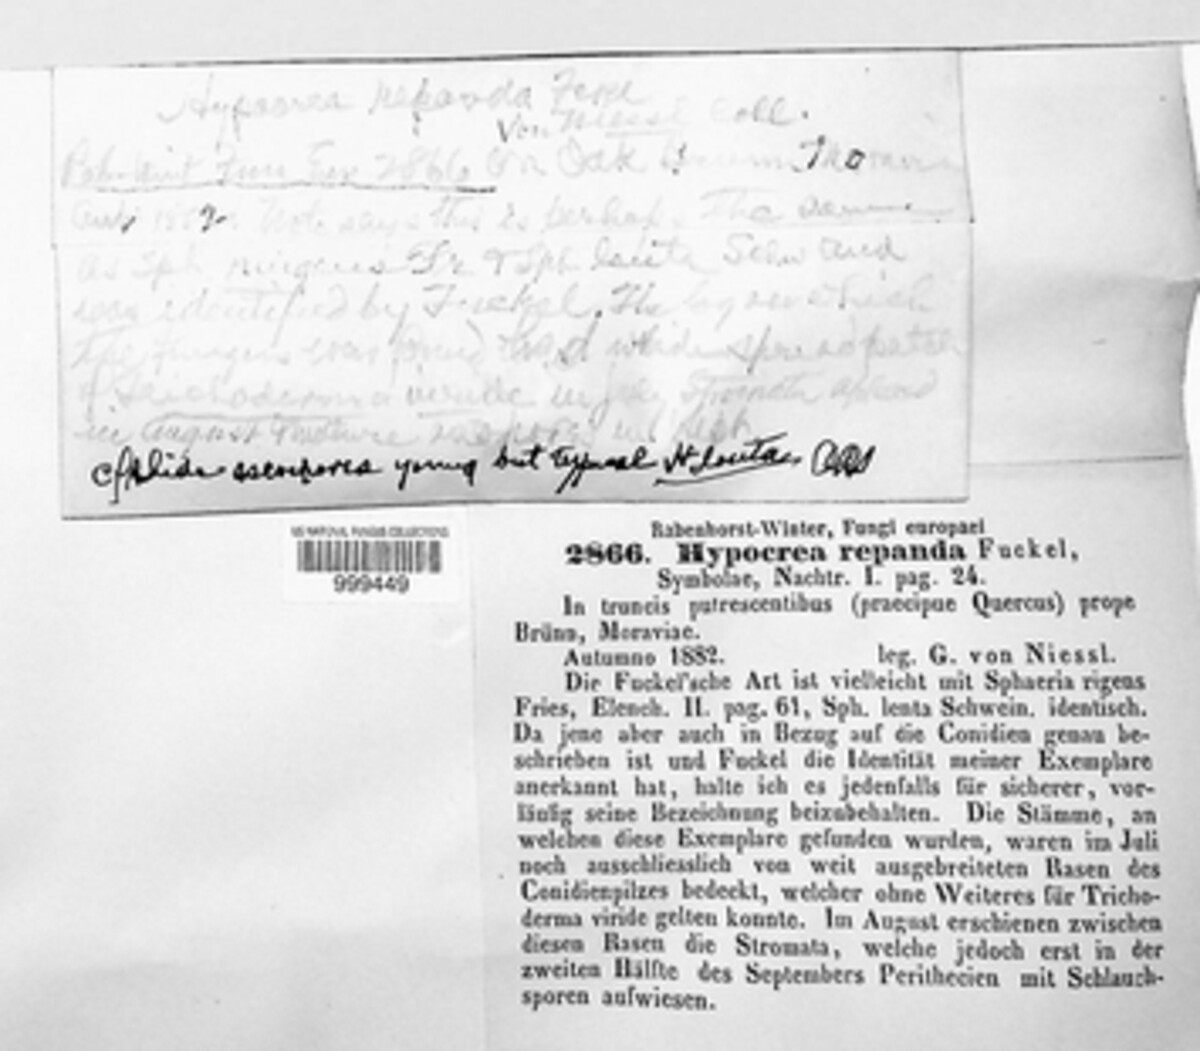 Hypocrea repanda Fckl
Von Niessl Coll.
Fun Eur 2866 On Oak
says this is perhaps The same
as Sph rigens Fr & Sph lenta Schw and
was identified by Fuckel. The logs on which
the fungus was found had wide spread patch
of Trichoderma viride in July Stromata appeared
in August Mature
cf slide ascospores young but typical H. lenta
US NATIONAL FUNGUS COLLECTIONS
999449
Rabenhorst-Winter, Fungi europaei
2866. Hypocrea repanda Fuckel,
Symbolae, Nachtr. I. pag. 24.
In truncis putrescentibus (praecipue Quercus) prope
Brünn, Moraviae.
Autumno 1882. leg. G. von Niessl.
Die Fuckel'sche Art ist vielleicht mit Sphaeria rigens
Fries, Elench. II. pag. 61, Sph. lenta Schwein. identisch.
Da jene aber auch in Bezug auf die Conidien genau be-
schrieben ist und Fuckel die Identität meiner Exemplare
anerkannt hat, halte ich es jedenfalls für sicherer, vor-
läufig seine Bezeichnung beizubehalten. Die Stämme, an
welchen diese Exemplare gefunden wurden, waren im Juli
noch ausschliesslich von weit ausgebreiteten Rasen des
Conidienpilzes bedeckt, welcher ohne Weiteres für Tricho-
derma viride gelten konnte. Im August erschienen zwischen
diesen Rasen die Stromata, welche jedoch erst in der
zweiten Hälfte des Septembers Perithecien mit Schlauch-
sporen aufwiesen.